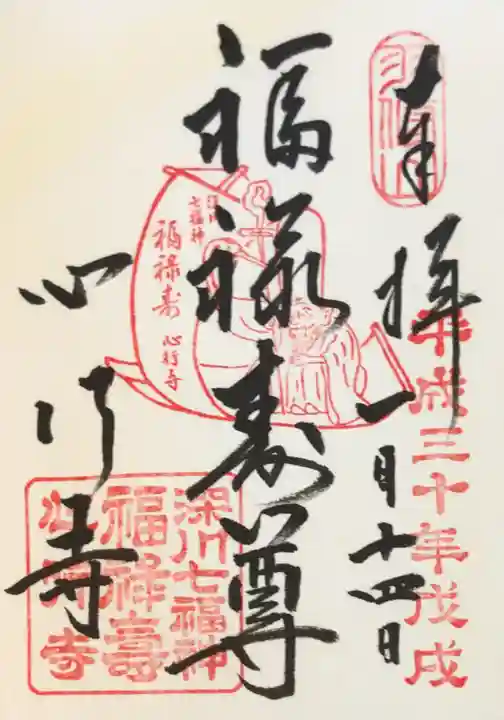 奉拝
平成三十年戊戌
一月十四日
福禄寿尊
深川
七福神
福禄寿
心行寺
心行寺
深川七福神
福禄壽
心行寺